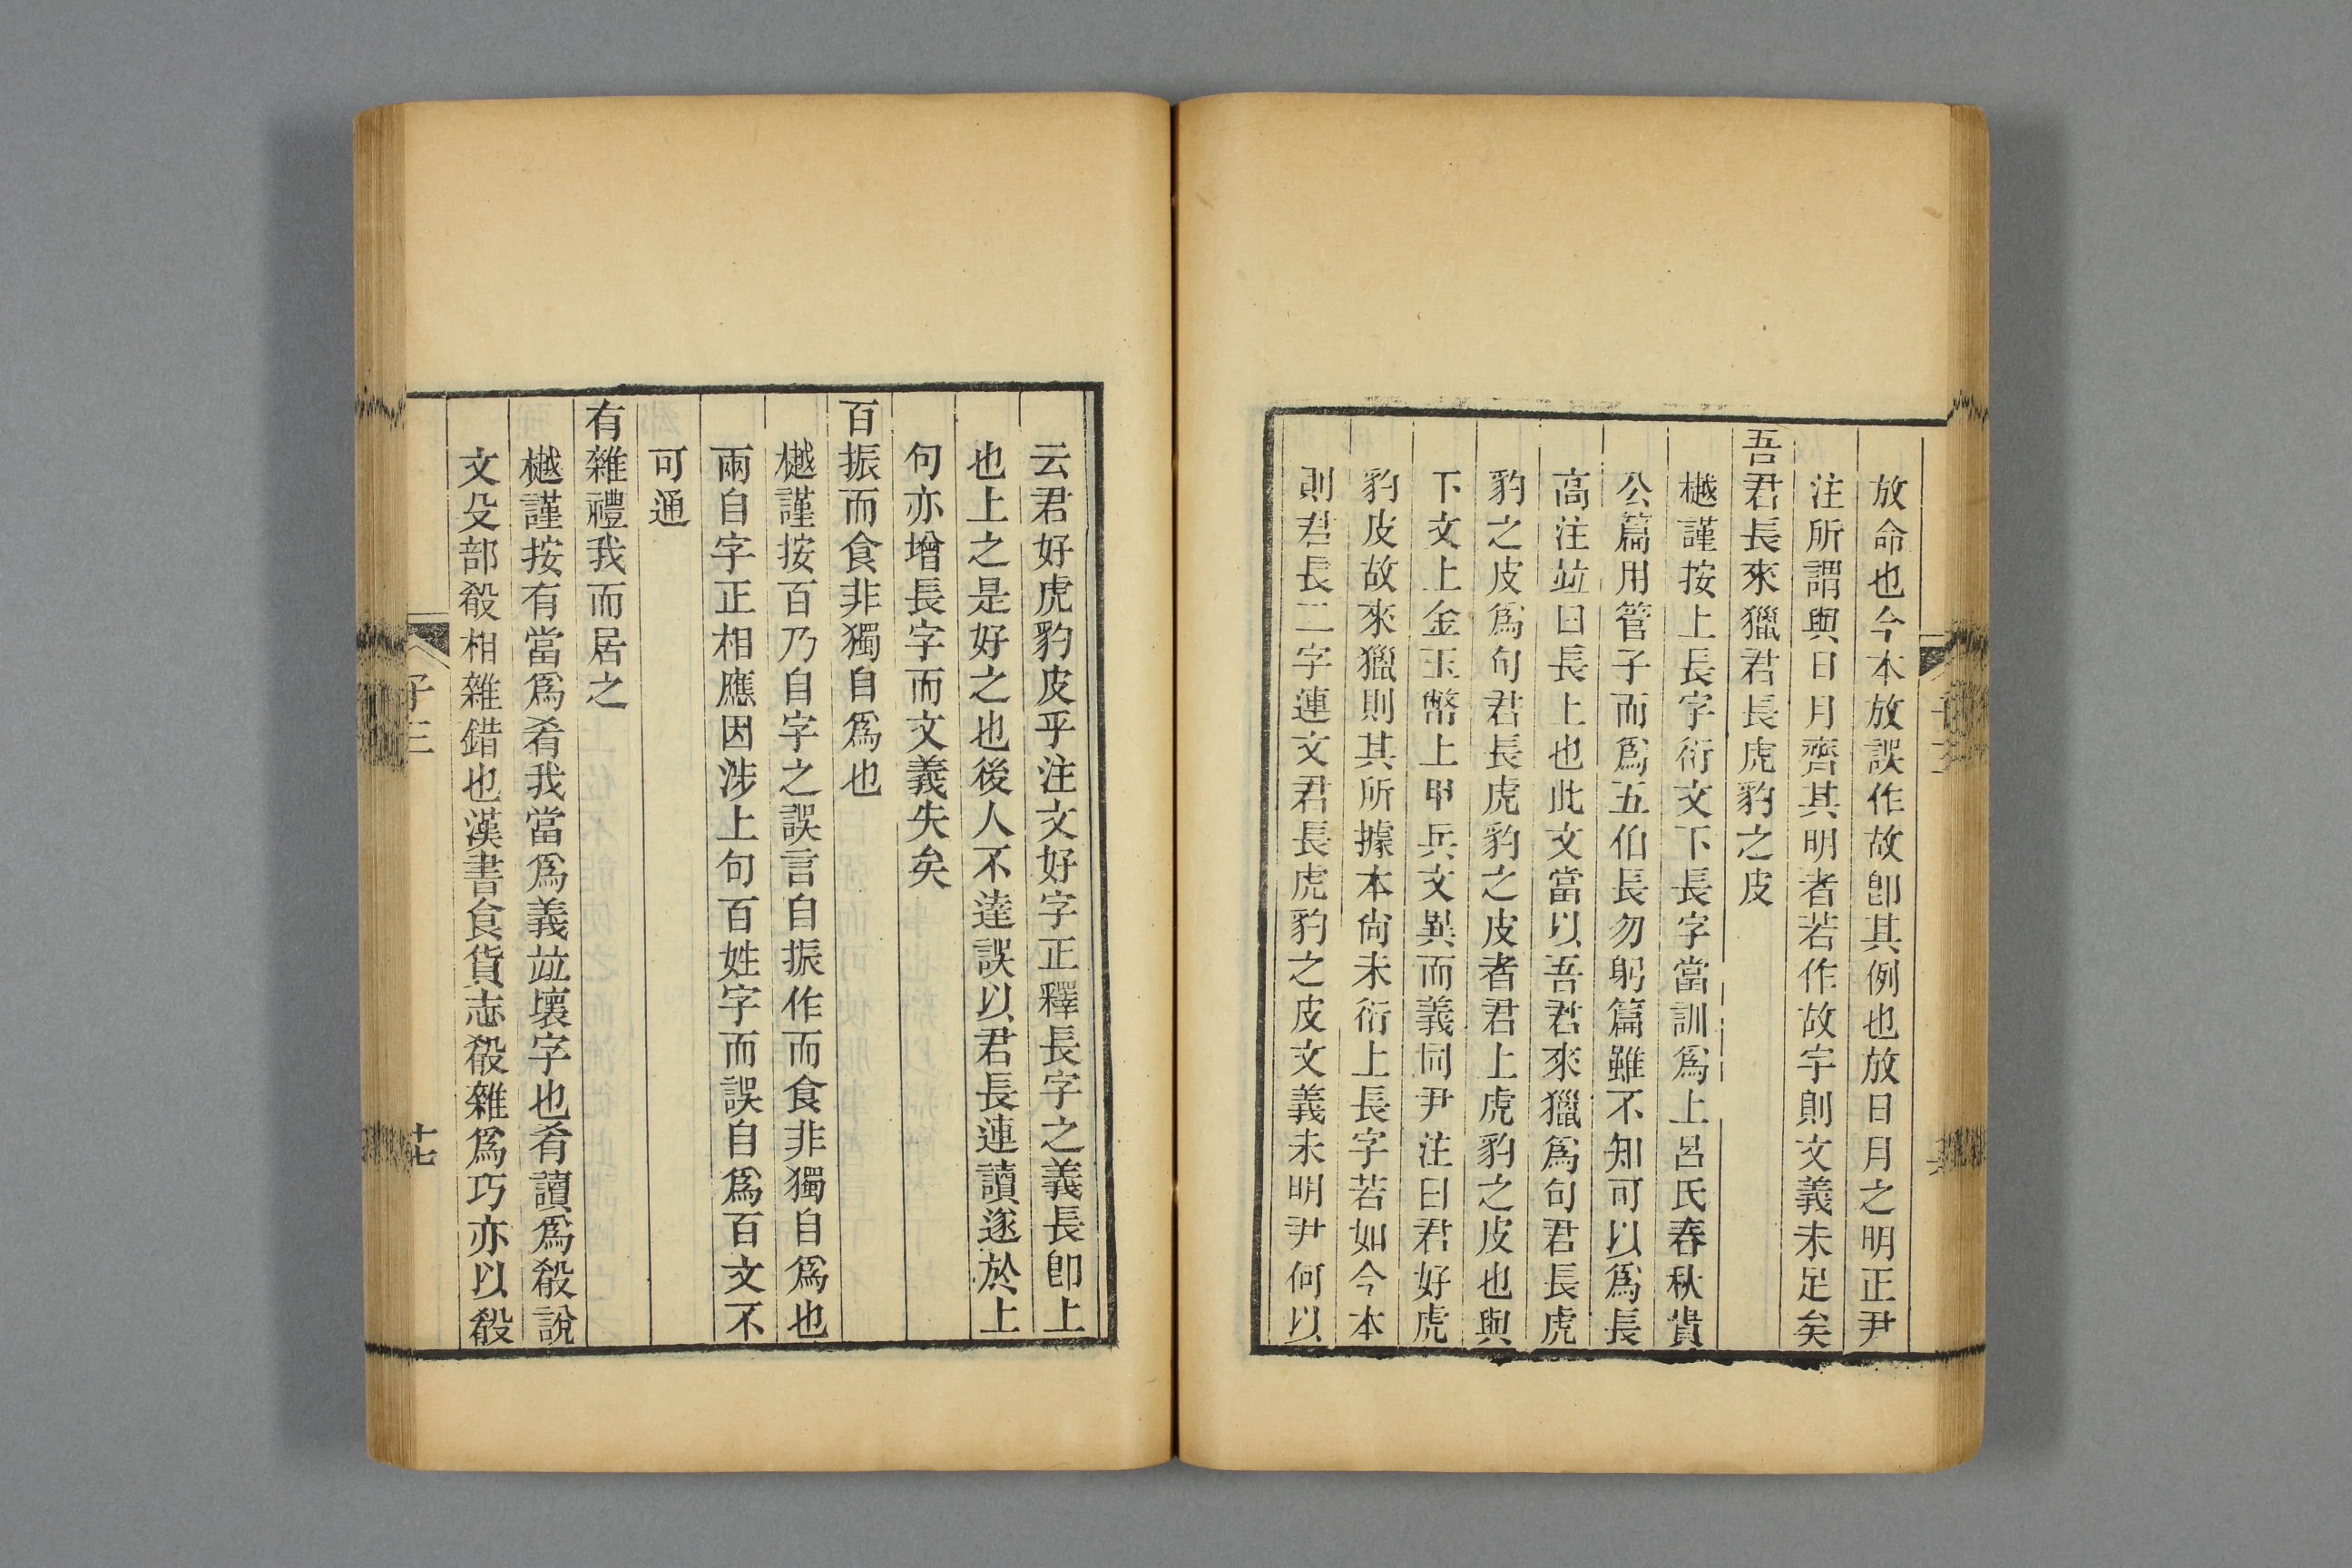 放命也今本放誤作故卽其例也放日月之明正尹
注所謂與日月齊其明者若作故字則文義未足矣
吾君長來獵君長虎豹之皮
樾謹按上長字衍文下長字當訓爲上呂氏春秋貴
公篇用管子而爲五伯長勿躬篇雖不知可以爲長
高注竝曰長上也此文當以吾君來獵爲句君長虎
豹之皮爲句君長虎豹之皮者君上虎豹之皮也與
下文上金玉幣上甲兵文異而義同尹注曰君好虎
豹皮故來獵則其所據本尙未衍上長字若如今本
則君長二字連文君長虎豹之皮文義未明尹何以
云君好虎豹皮乎注文好字正釋長字之義長卽上
也上之是好之也後人不達誤以君長連讀遂於上
句亦增長字而文義失矣
百振而食非獨自爲也
樾謹按百乃自字之誤言自振作而食非獨自爲也
兩自字正相應因涉上句百姓字而誤自爲百文不
可通
有雜禮我而居之
樾謹按有當爲肴我當爲義竝壞字也肴讀爲殽說
文殳部殽相雜錯也漢書食貨志殽雜爲巧亦以殽
子三
十七